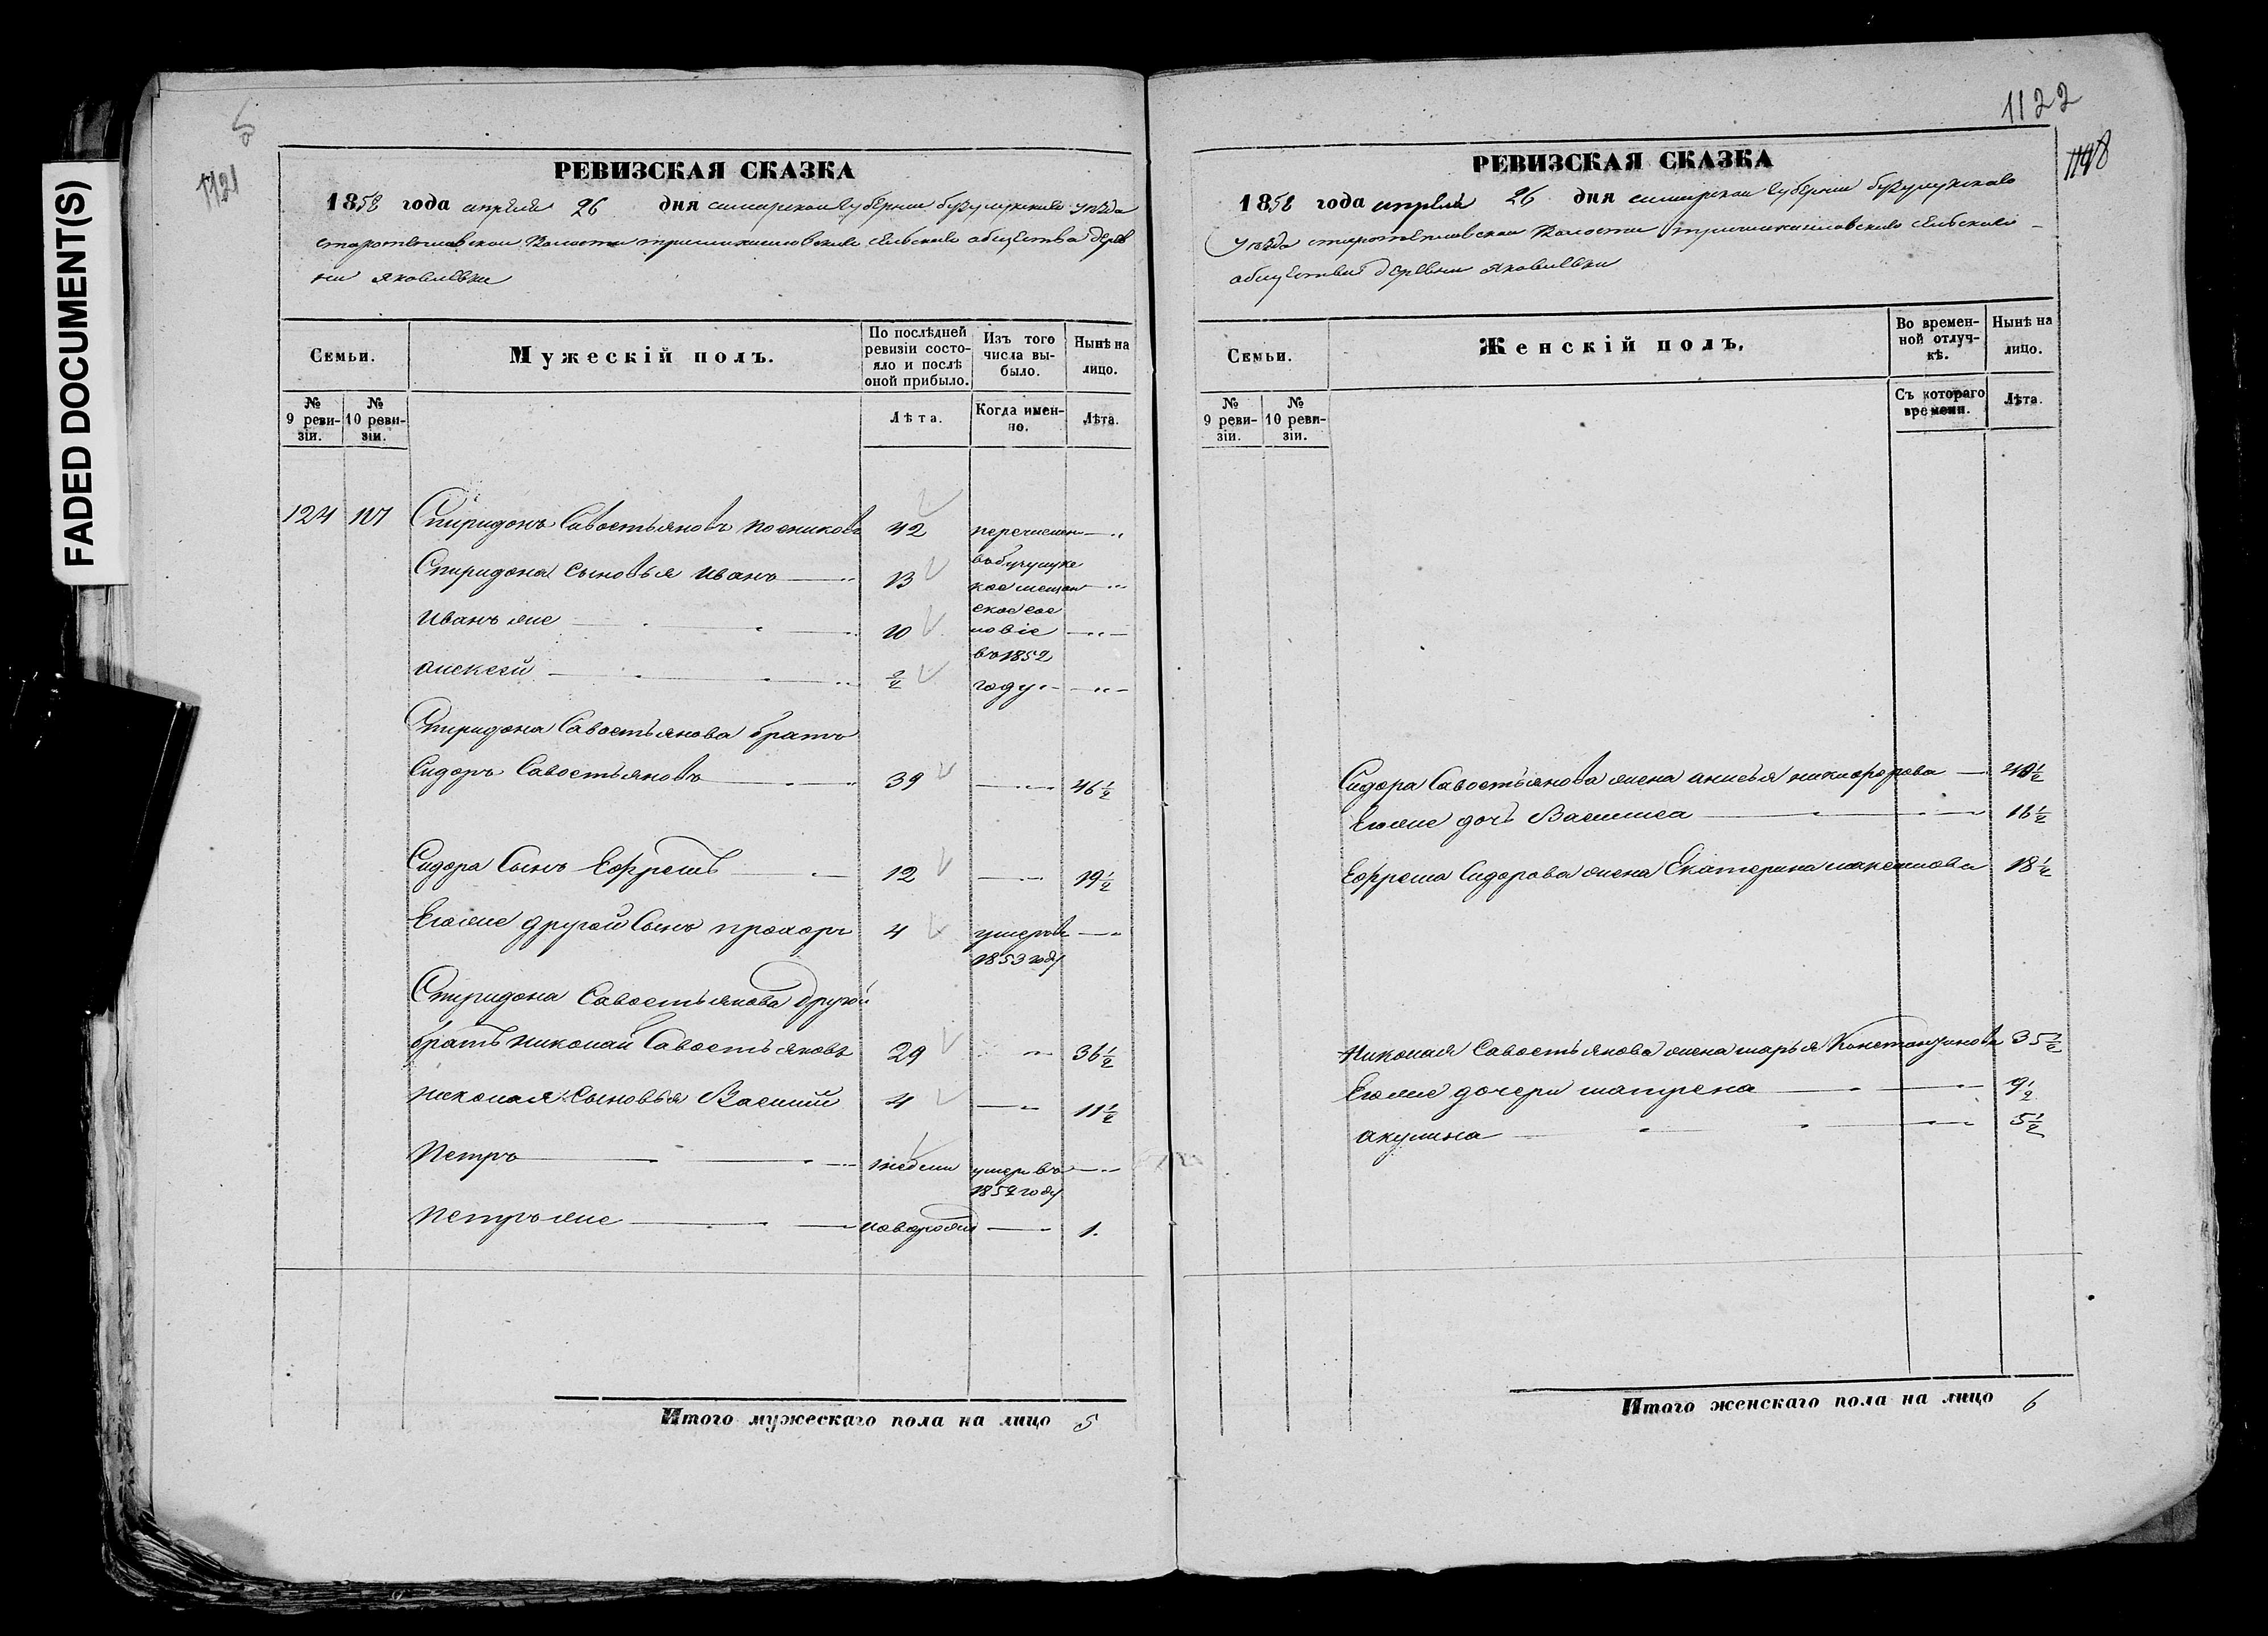 FADED DOCUMENT(S)
5
1121
РЕВИЗСКАЯ СКАЗКА
1858 года апреля 26 дня самарской губернии бузулукскаго уѣзда
старотепловской Волости сельскаго общества дерев
ни Яковлевки
Семьи.
Мужескій полъ.
По послѣдней ревизіи состояло и послѣ оной прибыло.
Изъ того числа выбыло.
Нынѣ на лицо.
№ 9 ревизіи.
№ 10 ревизіи.
Лѣта.
Когда именно.
Лѣта.
124 107 Спиридонъ Савостьяновъ 42 перечислен — "
Спиридона сыновья Иванъ — " 13 въ бузулукс
кое мещан — "
Иванъ же — " 10 ское сос
ловіе — " —
въ 1852
алексей — " году " — " —
Спиридона Савостьянова братъ
Сидоръ Савостьяновъ — " 39 — " 46 ½
Сидора Сынъ Ефремъ — 12 — " 19 ½
Его же другой Сынъ прохоръ 4 умеръ въ — "
1853 году
Спиридона Савостьянова другой
братъ николай Савостьяновъ 29 — " 36 ½
николая Сыновья Василий 4 — " 11 ½
Петръ — " 1 недели умеръ въ — "
году
Петръ же — новорожд — " 1.
Итого мужескаго пола на лицо 5
1122
1148
РЕВИЗСКАЯ СКАЗКА
1858 года апреля 26 дня самарской губернии бузулукскаго
уѣзда старотепловской Волости сельскаго —
общества деревни Яковлевки
Семьи.
Женскій полъ.
Во временной отлучкѣ.
Нынѣ на лицо.
№ 9 ревизіи.
№ 10 ревизіи.
Съ котораго времени.
Лѣта.
Сидора Савостьянова жена анисья никифорова —
Его же дочь Василиса — " 16 ½
Ефрема Сидорова жена Екатерина максимова 18 ½
Николая Савостьянова жена марья Константинова 35 ½
Его же дочери матрена — " 9 ½
акулина — " 5 ½
Итого женскаго пола на лицо 6